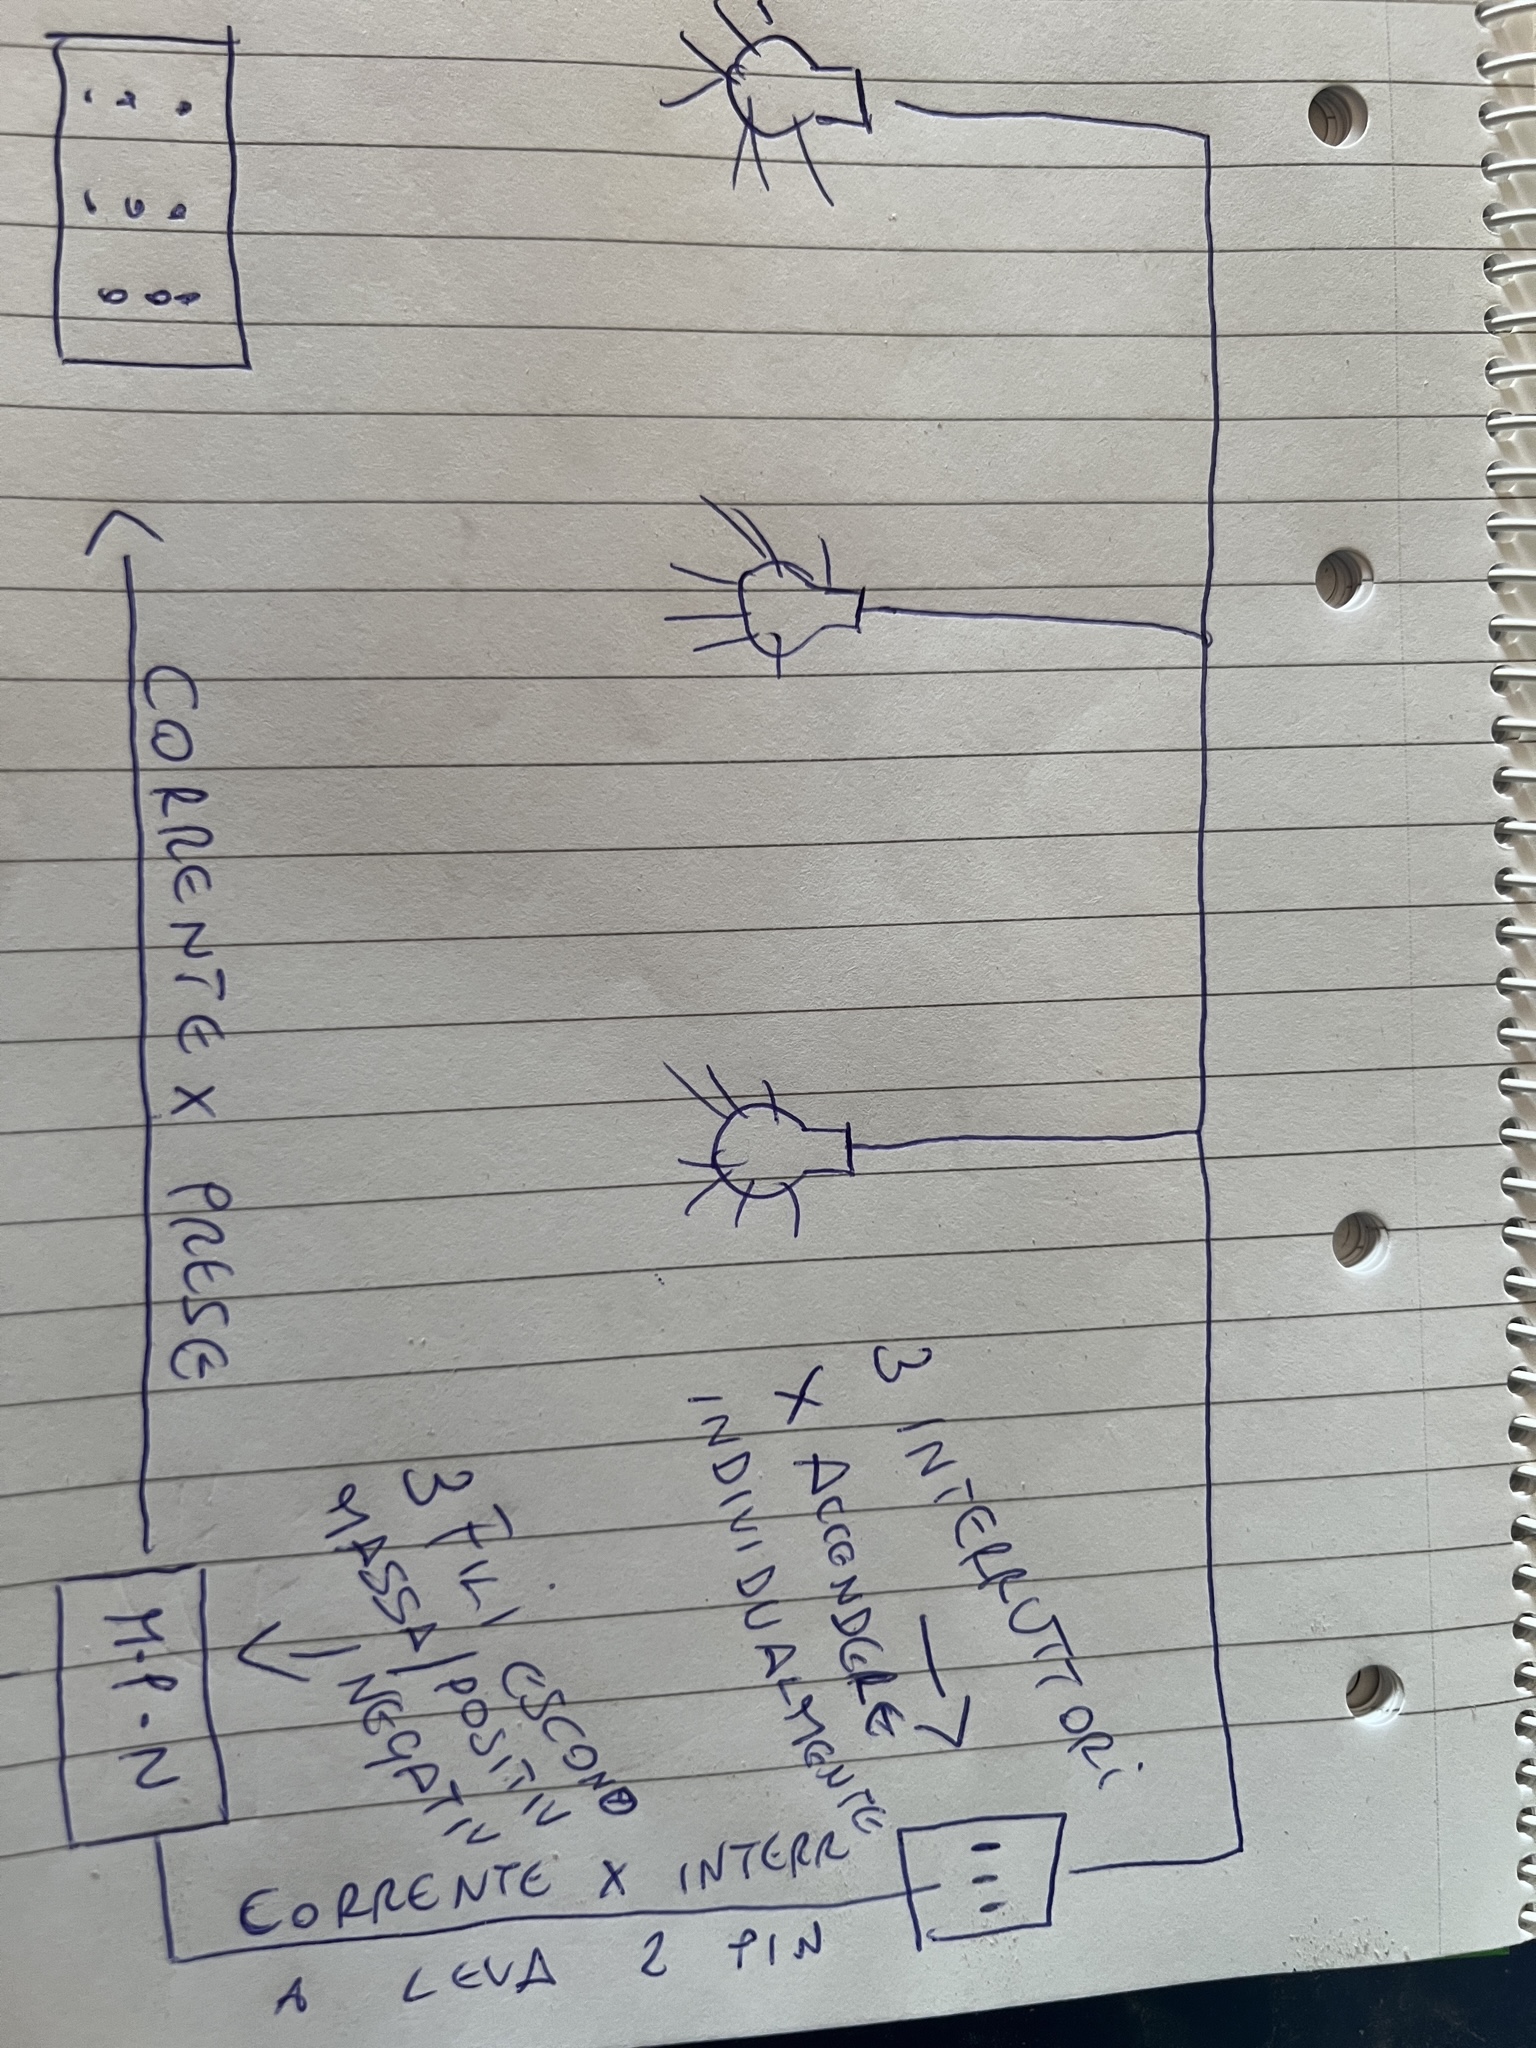 3 INTERRUTTORI
X ACCENDERE
INDIVIDUALMENTE
3 FILI ESCONO
MASSA / POSITIV
/ NEGATIV
CORRENTE X PRESE
M-P-N
CORRENTE X INTERR
A LEVA 2 PIN